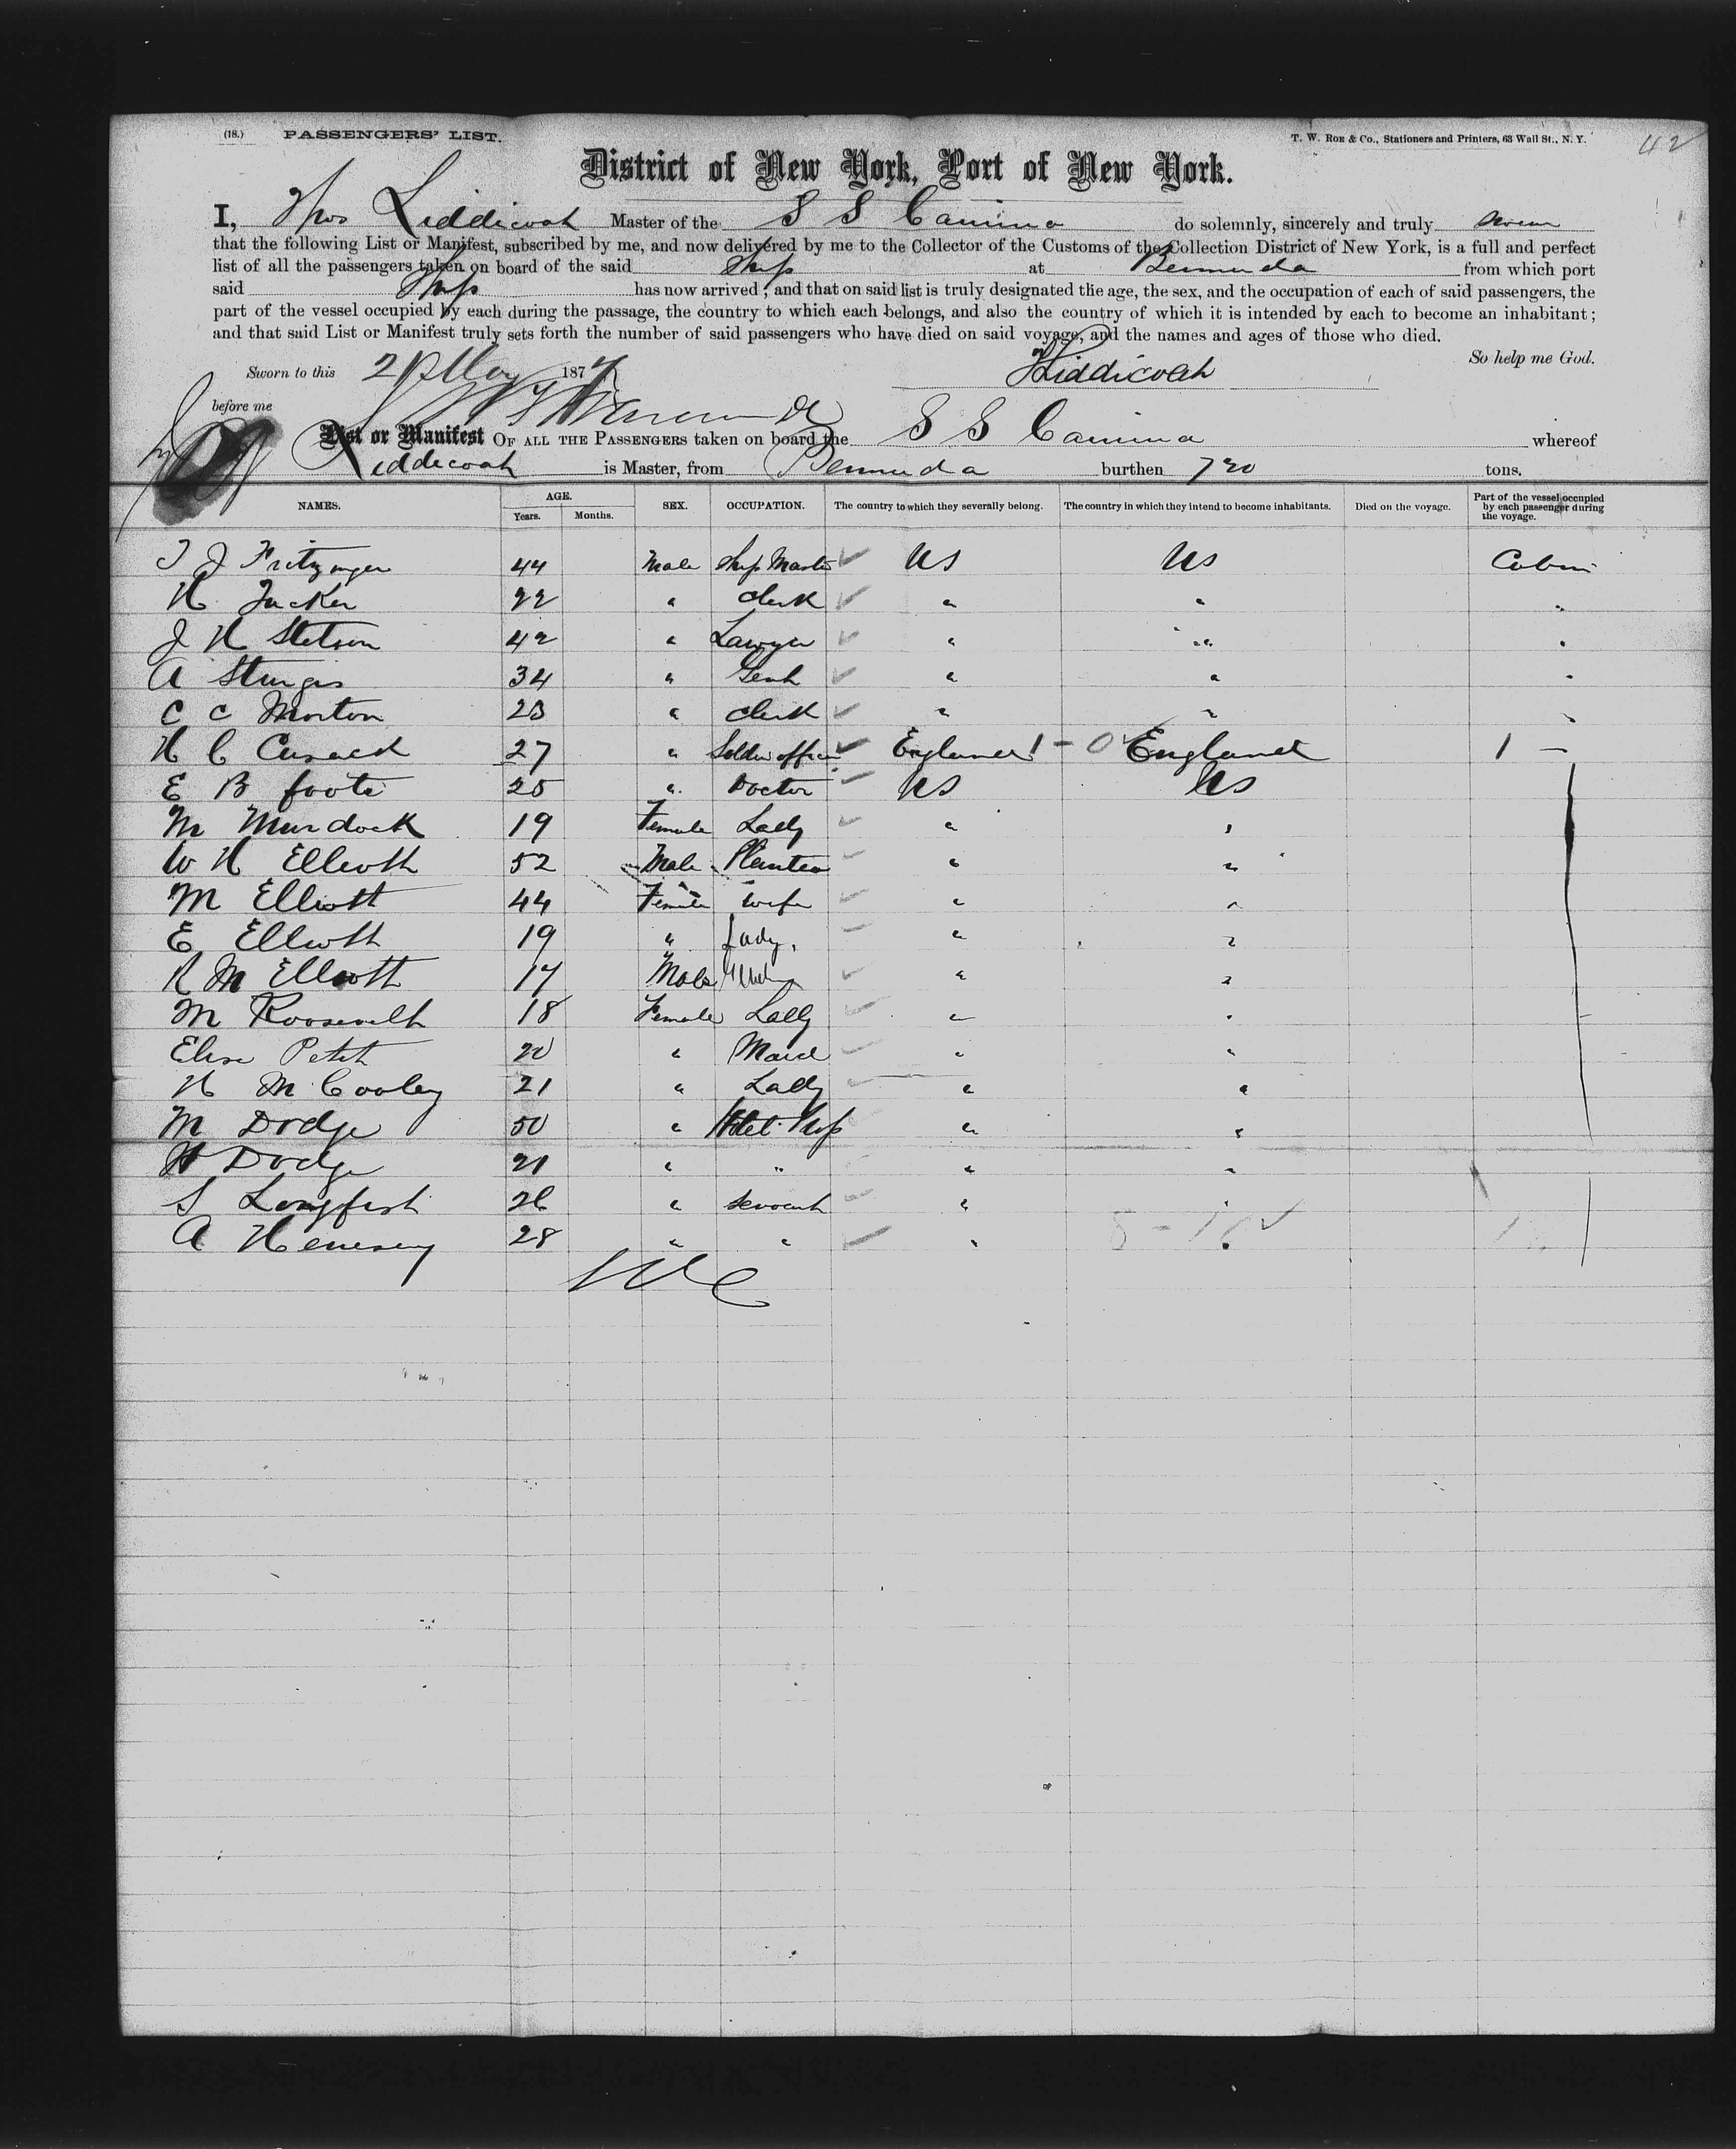 (18.) PASSENGERS' LIST. T. W. Roe & Co., Stationers and Printers, 63 Wall St., N. Y. 42
District of New York, Port of New York.
I, Liddicoat Master of the S S Canima do solemnly, sincerely and truly swear
that the following List or Manifest, subscribed by me, and now delivered by me to the Collector of the Customs of the Collection District of New York, is a full and perfect
list of all the passengers taken on board of the said Ship at Bermuda from which port
said Ship has now arrived; and that on said list is truly designated the age, the sex, and the occupation of each of said passengers, the
part of the vessel occupied by each during the passage, the country to which each belongs, and also the country of which it is intended by each to become an inhabitant;
and that said List or Manifest truly sets forth the number of said passengers who have died on said voyage, and the names and ages of those who died.
So help me God.
Sworn to this May 187 Liddicoat
before me
List or Manifest OF ALL THE PASSENGERS taken on board the S S Canima whereof
Liddicoat is Master, from Bermuda burthen 720 tons.
NAMES. AGE. Years. Months. SEX. OCCUPATION. The country to which they severally belong. The country in which they intend to become inhabitants. Died on the voyage. Part of the vessel occupied by each passenger during the voyage.
T J Fritzinger 44 Male Ship Master US US Cabin
H Tucker 22 " Clerk " " "
J H Stetson 42 " Lawyer " " "
A Sturgis 34 " Gent " " "
C C Morton 23 " Clerk " " "
H C Cusack 27 " Soldier officer England 1 - 0 England 1 -
E B foote 25 " Doctor US US
M Murdock 19 Female Lady " "
W H Elliott 52 Male Planter " "
M Elliott 44 Female wife " "
E Elliott 19 " Lady, " "
R M Elliott 17 Male " "
M Roosevelt 18 Female Lady " "
Elise Petit 20 " Maid " "
H M Cooley 21 " Lady " "
M Dodge 50 " Hotel Kp " "
H Dodge 21 " " " "
S Longfist 26 " servant " "
A Henesey 28 " " " "